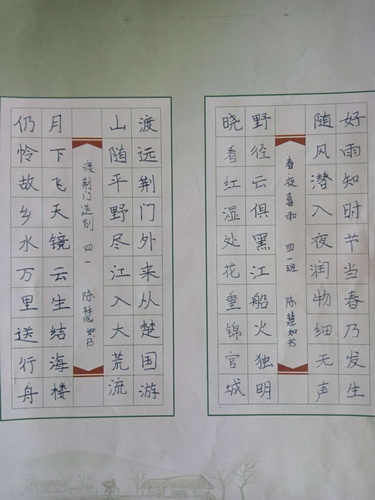 好雨知时节当春乃发生
随风潜入夜润物细无声
春夜喜雨 四一班 陈慧如书
野径云俱黑江船火独明
晓看红湿处花重锦官城
渡远荆门外来从楚国游
山随平野尽江入大荒流
渡荆门送别 四一 陈慧如书
月下飞天镜云生结海楼
仍怜故乡水万里送行舟